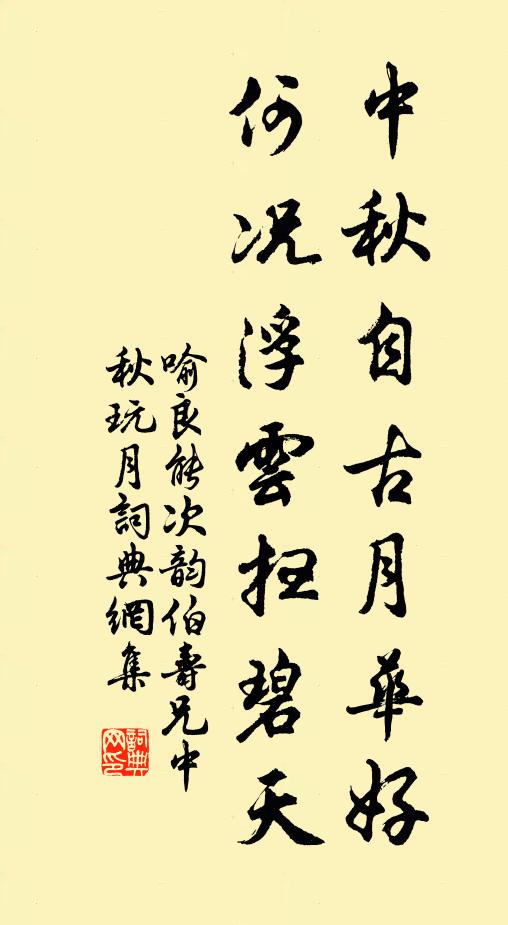 中秋自古月華好
何况浮雲扫碧天
喻良能次韵伯壽兄中
秋玩月詞典網集
詞典
网印